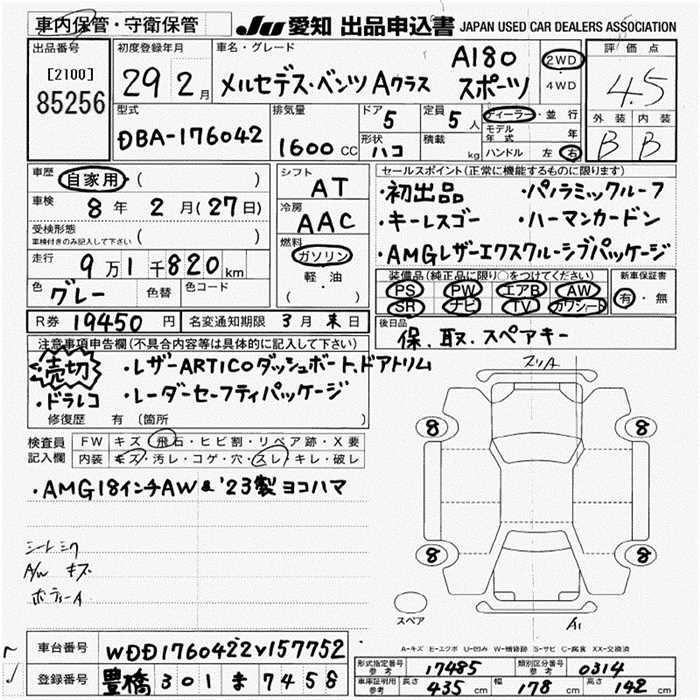 車内保管・守衛保管 JU 愛知 出品申込書 JAPAN USED CAR DEALERS ASSOCIATION
出品番号 [2100] 85256
初度登録年月 29年 2月
車名・グレード A180 メルセデス・ベンツ Aクラス スポーツ
2WD ・ 4WD
評価点 4.5
外装 内装
B B
型式 DBA-176042
排気量 1600 CC
ドア 5 形状 ハコ
定員 5人 積載 kg
ディーラー・並行
モデル年式 年
ハンドル 左 右
車歴 自家用・( )
車検 8年 2月(27日)
受検形態 車検付きのみ記入して下さい ( )
走行 9万1千820km
色 グレー 色替 色コード
シフト AT
冷房 AAC
燃料 ガソリン
軽・油
( ・ )
セールスポイント(正常に機能するものに限ります)
・初出品 ・パノラミックルーフ
・キーレスゴー ・ハーマンカードン
・AMGレザーエクスクルーシブパッケージ
装備品(純正品に限り○をつけてください) 新車保証書
PS PW エアB AW
SR ナビ TV カワシート
有・無
R券 19450円 名変通知期限 3月末日
後日品 保、取、スペアキー
注意事項申告欄(不具合内容等は具体的に記入して下さい)
売切 ・レザーARTICOダッシュボート、ドアトリム
・ドラレコ ・レーダーセーフティパッケージ
修復歴 有 (箇所 )
検査員記入欄 FW キズ・飛石・ヒビ割・リペア跡・X要
内装 キズ・汚レ・コゲ・穴・スレ・キレ・破レ
・AMG18インチAW & '23製ヨコハマ
シートシワ
A/W キズ
ボディーA
スリA
8 8
8 8
スペア
A1
A-キズ E-エクボ U-凹み W-補修跡 S-サビ C-腐食 XX-交換済
車台番号 WDD1760422V157752
登録番号 豊橋 301 ま 7458
形式指定番号 参考 17485 類別区分番号 参考 0314
車庫証明用 参考 長さ 435cm 幅 178cm 高さ 142cm